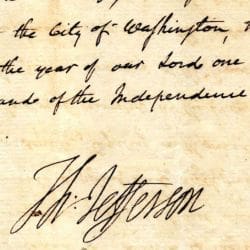 the City of Washington,
the year of our Lord one
and of the Independence
Th. Jefferson